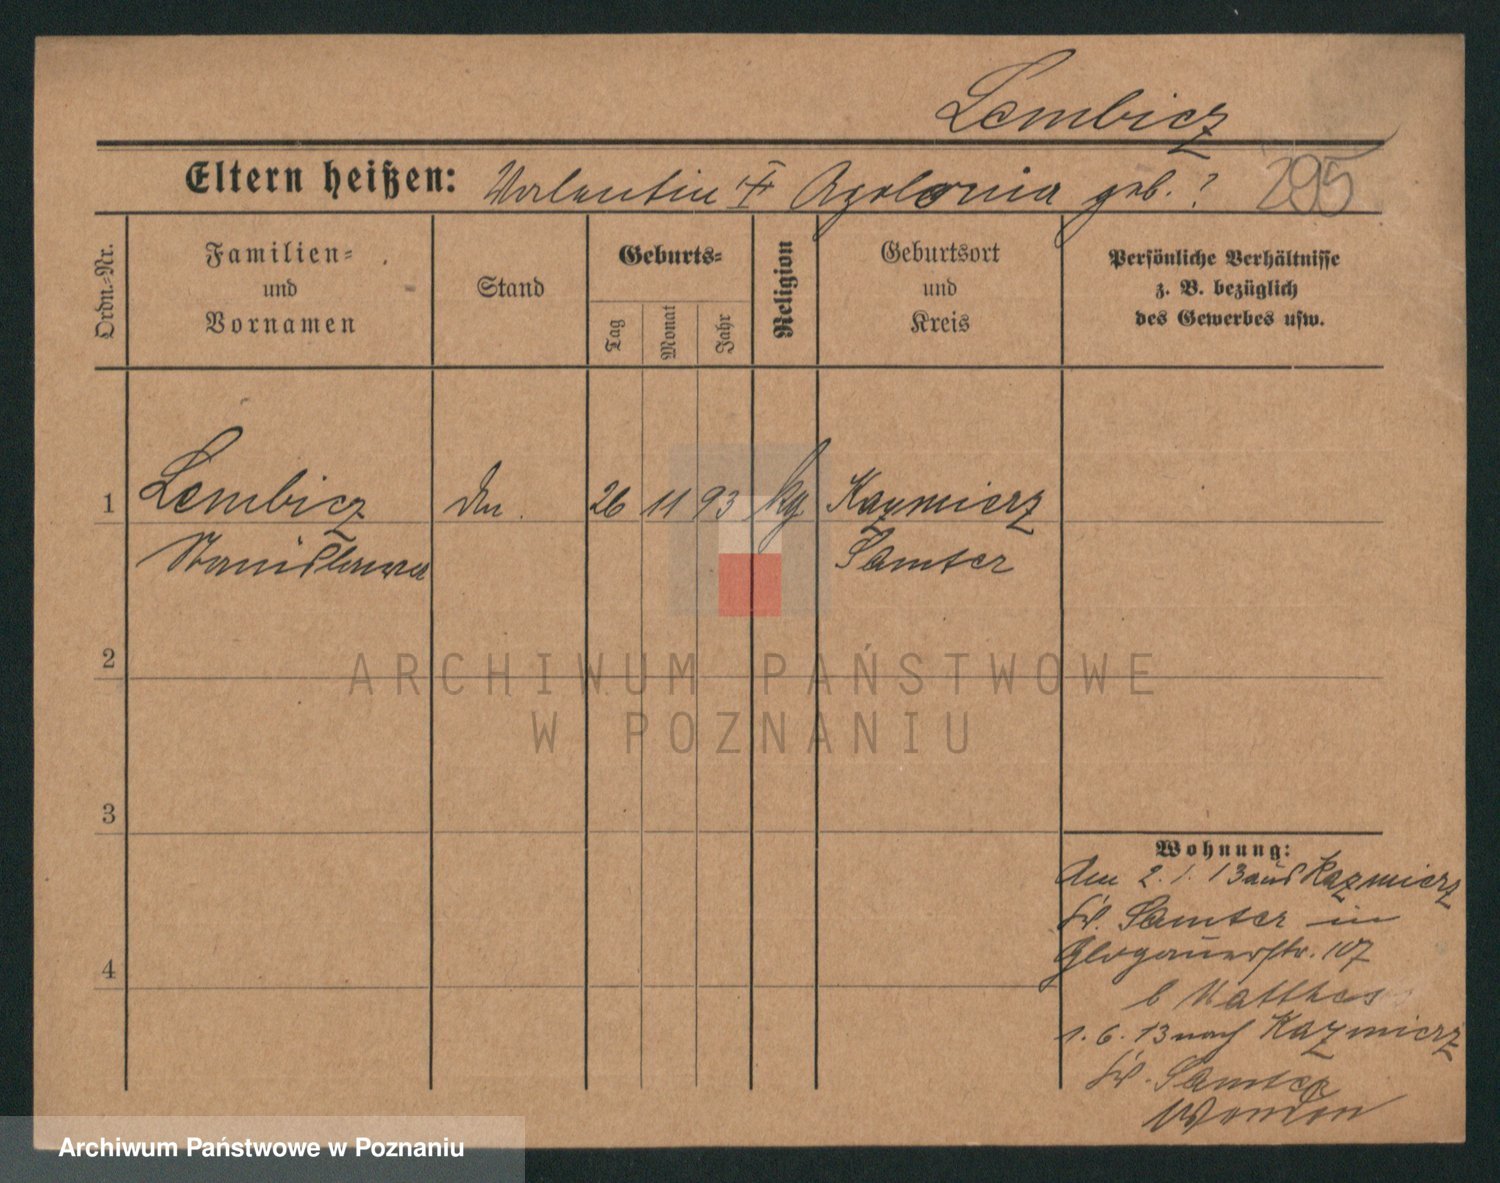 Lembicz
Eltern heißen: Valentin Apolonia geb. ? 295
Ordn.-Nr.
Familien-
und
Vornamen
Stand
Geburts-
Tag
Monat
Jahr
Religion
Geburtsort
und
Kreis
Persönliche Verhältnisse
z. B. bezüglich
des Gewerbes usw.
1 Lembicz 26 11 93 Kazmierz
Stanislawa Samter
2
ARCHIWUM PAŃSTWOWE
W POZNANIU
3
Wohnung:
Am 2. 1. 13 aus Kazmierz
Kr. Samter in
Glogauerstr. 107
b Matthes
4
1. 6. 13 nach Kazmierz
Kr. Samter
Archiwum Państwowe w Poznaniu